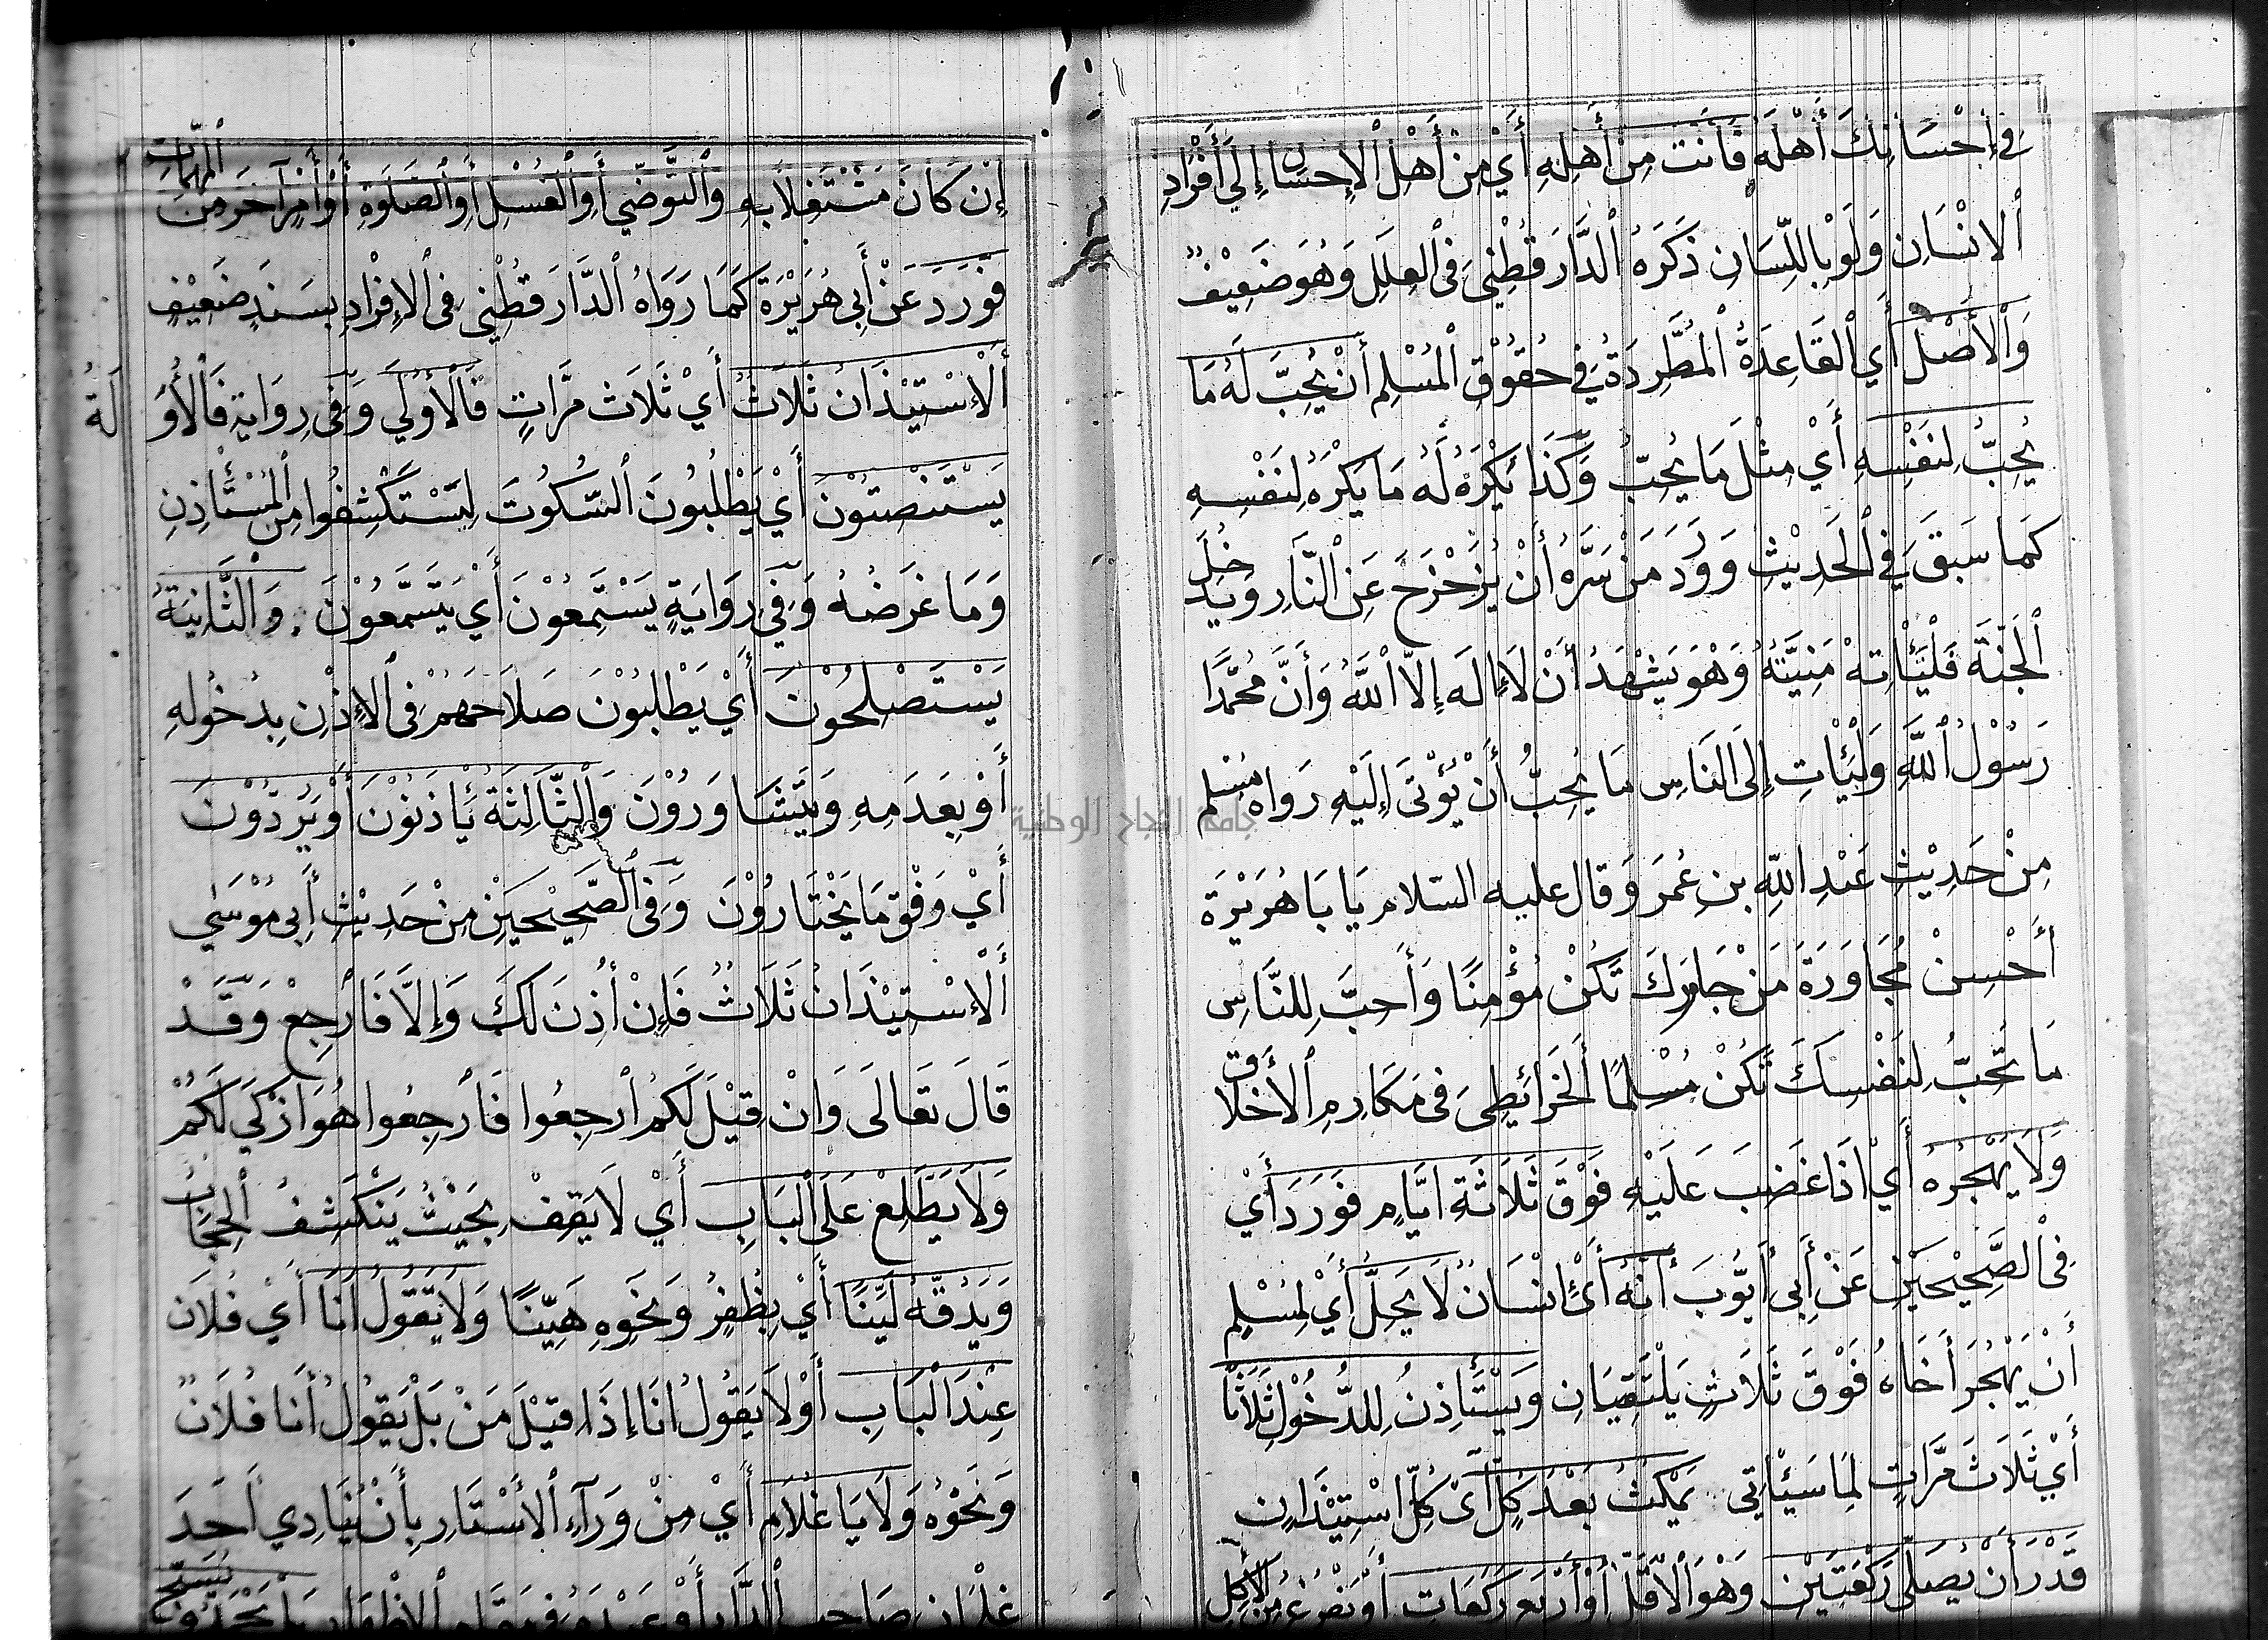 فِي إِحْسَانِكَ أَهْلَهُ فَأَنْتَ مِنْ أَهْلِهِ أَيْ مِنْ أَهْلِ الْإِحْسَانِ إِلَى أَفْرَادِ
الْإِنْسَانِ وَلَوْ بِاللِّسَانِ ذَكَرَهُ الدَّارَقُطْنِي فِي الْعِلَلِ وَهُوَ ضَعِيْفٌ
وَالْأَصْلُ أَيِ الْقَاعِدَةُ الْمُطَّرِدَةُ فِي حُقُوْقِ الْمُسْلِمِ أَنْ يُحِبَّ لَهُ مَا
يُحِبُّ لِنَفْسِهِ أَيْ مِثْلَ مَا يُحِبُّ وَكَذَا يَكْرَهُ لَهُ مَا يَكْرَهُ لِنَفْسِهِ
كَمَا سَبَقَ فِي الْحَدِيْثِ وَوَرَدَ مَنْ سَرَّهُ أَنْ يُزَحْزَحَ عَنِ النَّارِ وَيَدْخُلَ
الْجَنَّةَ فَلْيَأْتِهْ مَنِيَّتُهُ وَهُوَ يَشْهَدُ أَنْ لَا إِلَهَ إِلَّا اللَّهُ وَأَنَّ مُحَمَّدًا
رَسُوْلُ اللَّهِ وَلْيَأْتِ إِلَى النَّاسِ مَا يُحِبُّ أَنْ يُؤْتَى إِلَيْهِ رَوَاهُ مُسْلِم
مِنْ حَدِيْثِ عَبْدِ اللَّهِ بنِ عُمَرَ وَقَالَ عليه السّلام يَا بَا هُرَيْرَةَ
أَحْسِنْ مُجَاوَرَةَ مَنْ جَاوَرَكَ تَكُنْ مُؤْمِنًا وَأَحِبَّ لِلنَّاسِ
مَا تُحِبُّ لِنَفْسِكَ تَكُنْ مُسْلِمًا الْخَرَائِطِيَ فِي مَكَارِمِ الْأَخْلَاقِ
وَلَا يَهْجُرُهُ أَيْ إِذَا غَضِبَ عَلَيْهِ فَوْقَ ثَلَاثَةِ ايَّامٍ فَوَرَدَ أَيْ
فِي الصَّحِيْحَيْنِ عَنْ أَبِي أَيُّوْبَ أَنَّهُ أَيْ إِنْسَانٌ لَا يَحِلُّ أَيْ لِمُسْلِمٍ
أَنْ يَهْجُرَ أَخَاهُ فَوْقَ ثَلَاثٍ يَلْتَقِيَانِ وَيَسْتَأْذِنُ لِلدُّخُوْلِ ثَلَاثًا
أَيْ ثَلَاثَ مَرَّاتٍ لِمَا سَيَأْتِي يَمْكُثُ بَعْدَ كُلٍّ أَيْ كُلِّ اسْتِيْذَانٍ
قَدْرَ أَنْ يُصَلِّيَ رَكْعَتَيْنِ وَهُوَ الْأَقَلُّ أَوْ أَرْبَعَ رَكَعَاتٍ أَوْ يَفْرُغَ مِنَ الْأَكْلِ
إِنْ كَانَ مُشْتَغِلًا بِهِ وَالتَّوَضِّي أَوِ الْغُسْلِ أَوِ الصَّلَوةِ أَوْ أَمْرٍ آخَرَ مِنَ الْمُهِمَّاتِ
فَوَرَدَ عَنْ أَبِي هُرَيْرَةَ كَمَا رَوَاهُ الدَّارَقُطْنِي فِي الْإِفْرَادِ بِسَنَدٍ ضَعِيْفٍ
الْإِسْتِيْذَانُ ثَلَاثٌ أَيْ ثَلَاثَ مَرَّاتٍ فَالْأُوْلَى وَفِي رِوَايَةٍ فَالْأَوَّلَةُ
يَسْتَنْصِتُوْنَ أَيْ يَطْلُبُوْنَ السُّكُوْتَ لِيَسْتَكْشِفُوا مِنَ الْمُسْتَأْذِنِ
وَمَا غَرَضُهُ وَفِي رِوَايَةٍ يَسْتَمِعُوْنَ أَيْ يَتَسَمَّعُوْنَ وَالثَّانِيَةُ
يَسْتَصْلِحُوْنَ أَيْ يَطْلُبُوْنَ صَلَاحَهُمْ فِي الْإِذْنِ بِدُخُولِهِ
أَوْ بِعَدَمِهِ وَيَتَشَاوَرُوْنَ وَالثَّالِثَةُ يَأْذَنُوْنَ أَوْ يَرُدُّوْنَ
أَيْ وَفْقَ مَا يَخْتَارُوْنَ وَفِي الصَّحِيْحَيْنِ مِنْ حَدِيْثِ أَبِي مُوْسَى
الْإِسْتِيْذَانُ ثَلَاثٌ فَإِنْ أُذِنَ لَكَ وَإِلَّا فَارْجِعْ وَقَدْ
قَالَ تَعَالَى وَانْ قِيْلَ لَكُمُ ارْجِعُوا فَارْجِعُوا هُوَ ازْكَى لَكُمْ
وَلَا يَطَّلِعْ عَلَى الْبَابِ أَيْ لَا يَقِفْ بِحَيْثُ يَنْكَشِفُ الْحِجَابُ
وَيَدُقُّهُ لَيِّنًا أَيْ بِظُفْرٍ وَنَحْوِهِ هَيِّنًا وَلَا يَقُوْلُ أَنَا أَيْ فُلَان
عِنْدَ الْبَابِ أَوْ لَا يَقُوْلُ انَا إِذَا قِيْلَ مَنْ بَلْ يَقُوْلُ أَنَا فُلَانٌ
وَنَحْوُهُ وَلَا يَا غُلَام أَيْ مِنْ وَرَآءِ الْأَسْتَارِ بِأَنْ يُنَادِي أَحَدَ
جامعة النجاح الوطنية